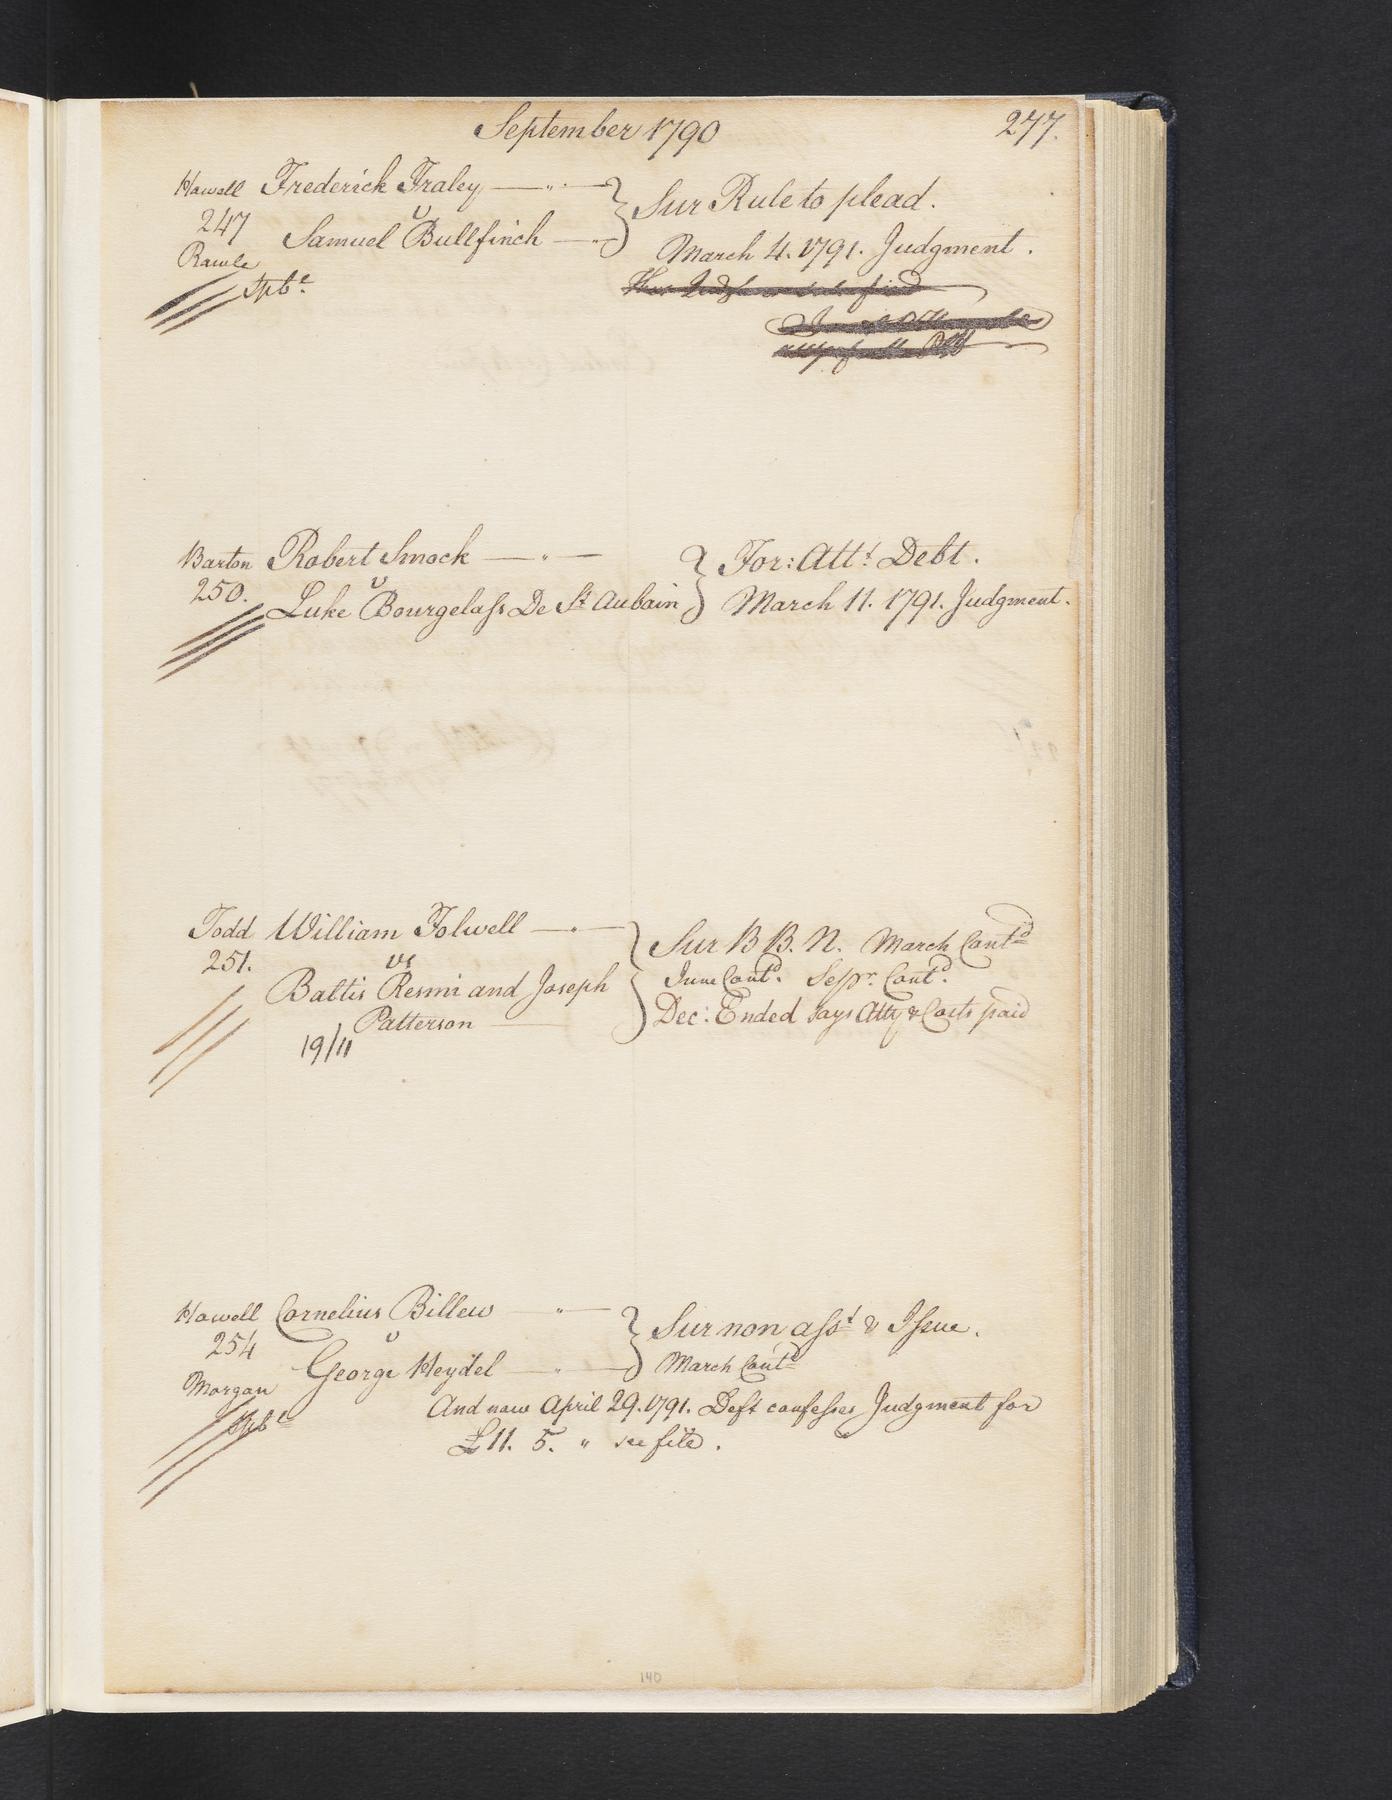 September 1790
277.
Howell Frederick Fraley } Sur Rule to plead.
247 v
Samuel Bullfinch March 4. 1791. Judgment.
Rawle
Spbᵃ.
Barton Robert Smock } For: Attᵗ. Debt.
250. v
Luke Bourgelass De Sᵗ Aubain March 11. 1791. Judgment.
Todd William Folwell } Sur B B. N. March Contᵈ
251. vs
Baltis Resmi and Joseph June Contᵈ. Sepʳ. Contᵈ.
Patterson Dec: Ended says Atty & Costs paid
19/11
Howell Cornelius Billew } Sur non assᵗ & Issue.
254 v
George Heydel March Contᵈ
Morgan And now April 29. 1791. Deft confesses Judgment for
Spbᵃ £11. 5. " see file.
140